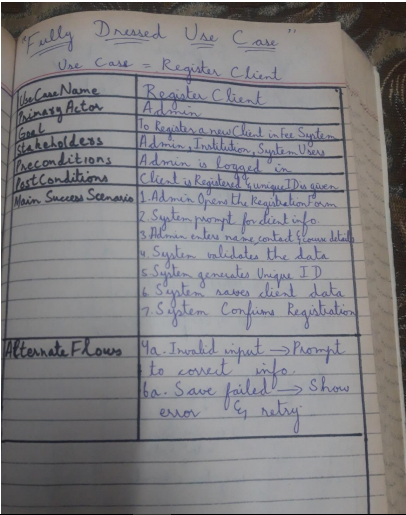 "Fully Dressed Use Case"
Use Case = Register Client
Use Case Name Register Client
Primary Actor Admin
Goal To Register a new Client in Fee System
Stakeholders Admin, Institution, System Users
Preconditions Admin is logged in
Post Conditions Client is Registered & unique ID is given
Main Success Scenario 1. Admin Opens the Registration Form
2. System prompt for client info.
3. Admin enters name, contact & course details
4. System validates the data
5. System generates Unique ID
6. System saves client data
7. System Confirms Registration
Alternate Flows 4a. Invalid input → Prompt
to correct info.
6a. Save failed → Show
error & retry